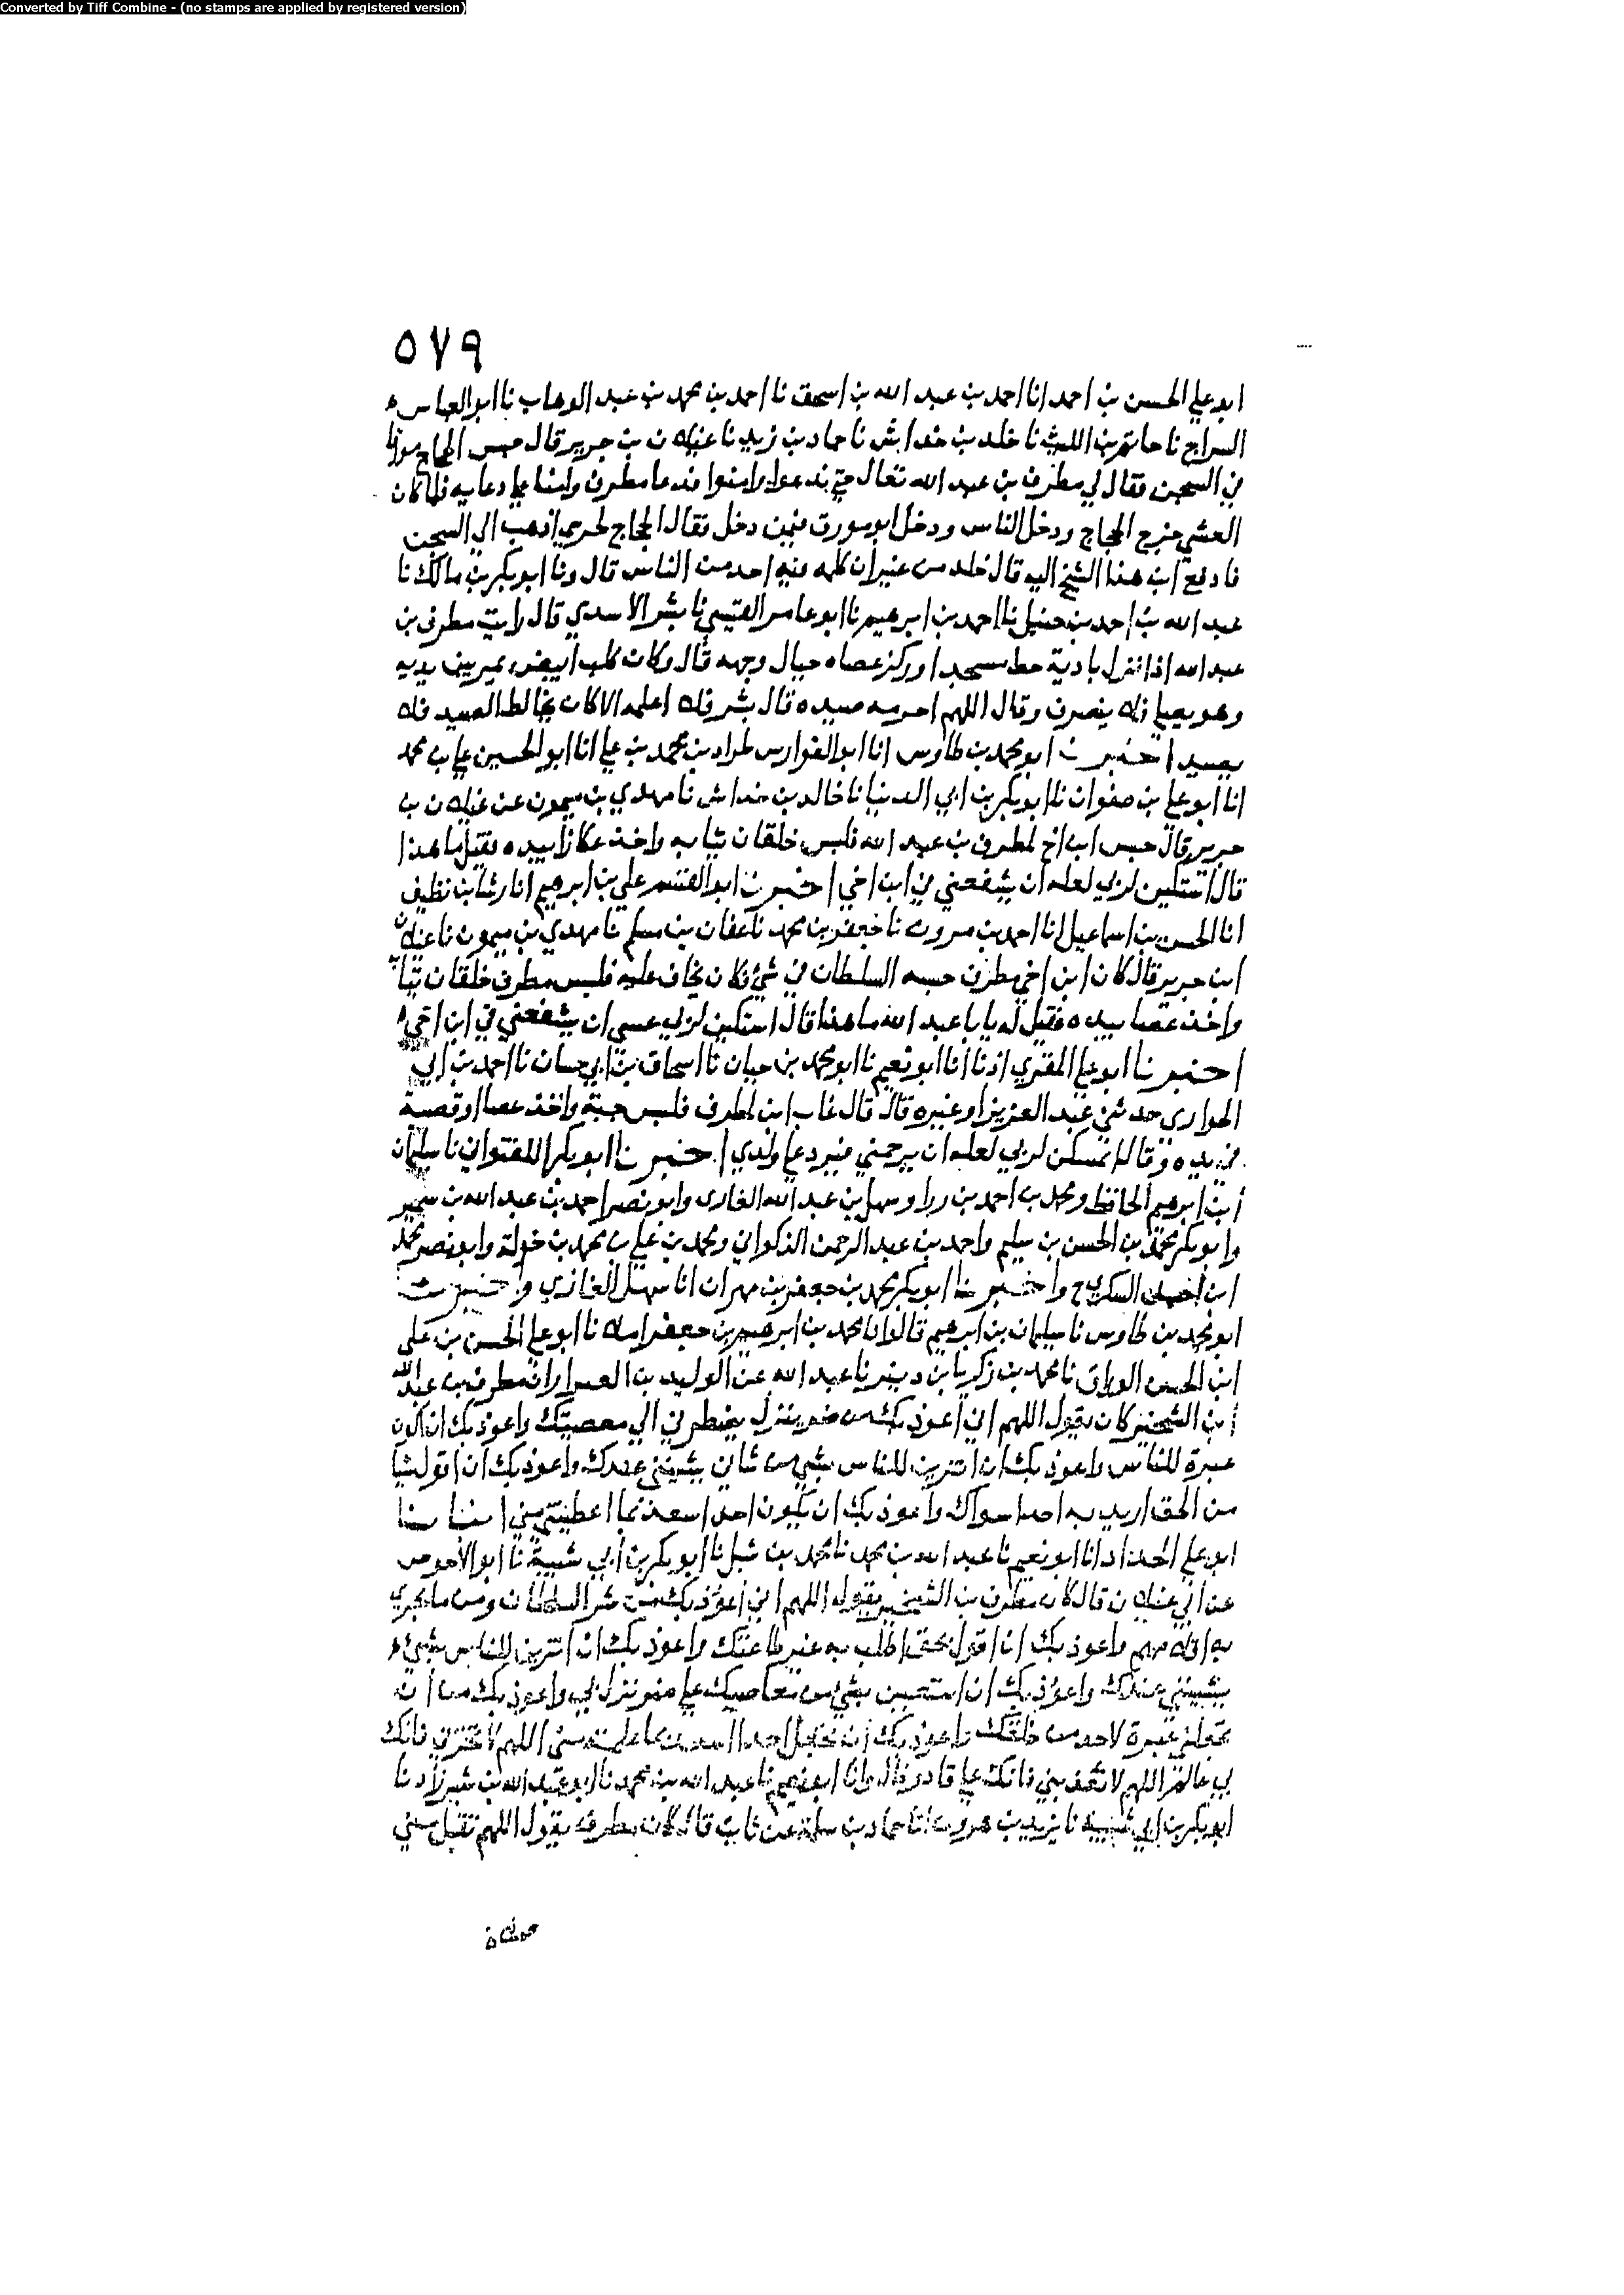 Converted by Tiff Combine - (no stamps are applied by registered version)
٥٧٩
ابو علي الحسن بن احمد انا احمد بن عبد الله بن اسحق نا احمد بن محمد بن عبد الوهاب نا ابو العباس
السراج نا حاتم بن الليث نا خلد بن خداش نا حماد بن زيد نا غيلان بن جرير قال حبس الحجاج مورقا
في السجن فقال لي مطرف بن عبد الله تعال حتي ندعوا وامنوا فدعا مطرف وامنا علي دعايه فلما كان
العشي خرج الحجاج ودخل الناس ودخل ابو مورق فيمن دخل فقال الحجاج لحرسي اذهب الي السجن
فادفع ابن هذا الشيخ اليه قال خلد من غير ان كلمه فيه احد من الناس قال ونا ابو بكر بن مالك نا
عبد الله بن احمد بن حنبل نا احمد بن ابرهيم نا ابو عامر القيسي نا بشر الاسدي قال رايت مطرف بن
عبد الله اذا نزل بادية خط مسجدا وركز عصاه حيال وجهه قال وكان كلب ابيض يمر بين يديه
وهو يصلي فلا ينصرف وقال اللهم احرمه صيده قال بشر فلا اعلمه الا كان يخالط الصيد فلا
يصيد اخبرنا ابو محمد بن طاوس انا ابو الفوارس طراد بن محمد بن علي انا ابو الحسين علي بن محمد
انا ابو علي بن صفوان نا ابو بكر بن ابي الدنيا نا خالد بن خداش نا مهدي بن ميمون عن غيلان بن
جرير قال حبس ابن اخ لمطرف بن عبد الله فلبس خلقان ثيابه واخذ عكازا بيده فقيل ما هذا
قال استكين لربي لعله ان يشفعني في ابن اخي اخبرنا ابو القسم علي بن ابرهيم انا رشا بن نظيف
انا الحسن بن اسماعيل انا احمد بن مروان نا جعفر بن محمد نا عفان بن مسلم نا مهدي بن ميمون نا غيلان
ابن جرير قال كان ابن اخي مطرف حبسه السلطان في شئ فكان يخاف عليه فلبس مطرف خلقان ثيابه
واخذ عصا بيده فقيل له يا با عبد الله ما هذا قال استكين لربي عسى ان يشفعني في ابن اخي
اخبرنا ابو علي المقري اذنا انا ابو نعيم نا ابو محمد بن حيان نا اسحاق بن ابي حسان نا احمد بن ابي
الحواري حدثني عبد العزيز او غيره قال قال غاب ابن لمطرف فلبس جبة واخذ عصا او قصبة
في يده وقال اتمسكن لربي لعله ان يرحمني فيرد علي ولدي اخبرنا ابو بكر اللفتواني نا سليمان
ابن ابرهيم الحافظ ومحمد بن احمد بن ررا وسهل بن عبد الله الغازي وابو نصر احمد بن عبد الله بن سمير
وابو بكر محمد بن الحسن بن سليم واحمد بن عبد الرحمن الذكواني ومحمد بن علي بن محمد بن خولة وابو نصر محمد
ابن السكري ح واخبرنا ابو بكر محمد بن جعفر بن مهران انا سهل الغازي واخبرنا
ابو محمد بن طاوس نا سليمان بن ابرهيم قالوا انا محمد بن ابرهيم بن جعفر املا نا ابو علي الحسن بن علي
ابن الحسن الوراق نا محمد بن زكريا بن دينر نا عبد الله عن الوليد بن ان مطرف بن عبد الله
ابن الشخير كان يقول اللهم اني اعوذ بك من ضر ينزل يضطرني الي معصيتك واعوذ بك ان اكون
عبرة للناس واعوذ بك ان اتزين للناس بشي من شاني يشينني عندك واعوذ بك ان اقول شيا
من الحق اريد به احدا سواك واعوذ بك ان يكون احد اسعد بما اعطيتني مني انبانا
ابو علي الحداد انا ابو نعيم نا عبد الله بن محمد نا محمد بن شبل نا ابو بكر بن ابي شيبة نا ابو الاحوص
عن ابي غيلان قال كان مطرف بن الشخير يقول اللهم اني اعوذ بك من شر السلطان ومن ما يجري
به اقلامهم واعوذ بك ان اقول بحق اطلب به غير طاعتك واعوذ بك ان اتزين للناس بشئ
يشينني عندك واعوذ بك ان استعين بشئ من معاصيك علي ضر نزل بي واعوذ بك من ان
تجعلني عبرة لاحد من خلقك واعوذ بك ان تجعل احدا اسعد بما علمته مني اللهم لا تخزني فانك
بي عالم اللهم لا تعذبني فانك علي قادر قال وانا ابو نعيم نا عبد الله بن محمد نا ابو عبد الله بن شيرزاد نا
ابو بكر بن ابي شيبة نا يزيد بن هرون انا حماد بن سلمة عن ثابت قال كان مطرف يقول اللهم تقبل مني
صلاة